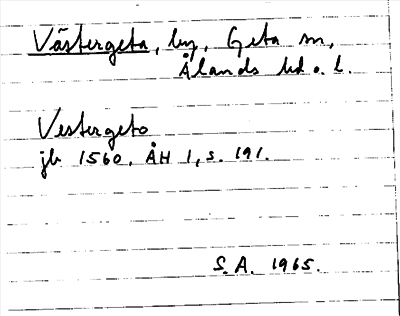 Västergeta, by, Geta sn,
Ålands hd o. l.
Vestergeto
jb 1560. ÅH 1, s. 191.
S. A. 1965.